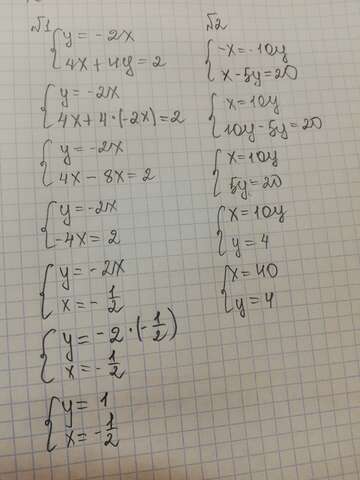 №1
y = -2x
4x + 4y = 2
y = -2x
4x + 4·(-2x) = 2
y = -2x
4x - 8x = 2
y = -2x
-4x = 2
y = -2x
x = - 1/2
y = -2·(-1/2)
x = - 1/2
y = 1
x = - 1/2
№2
-x = -10y
x - 5y = 20
x = 10y
10y - 5y = 20
x = 10y
5y = 20
x = 10y
y = 4
x = 40
y = 4